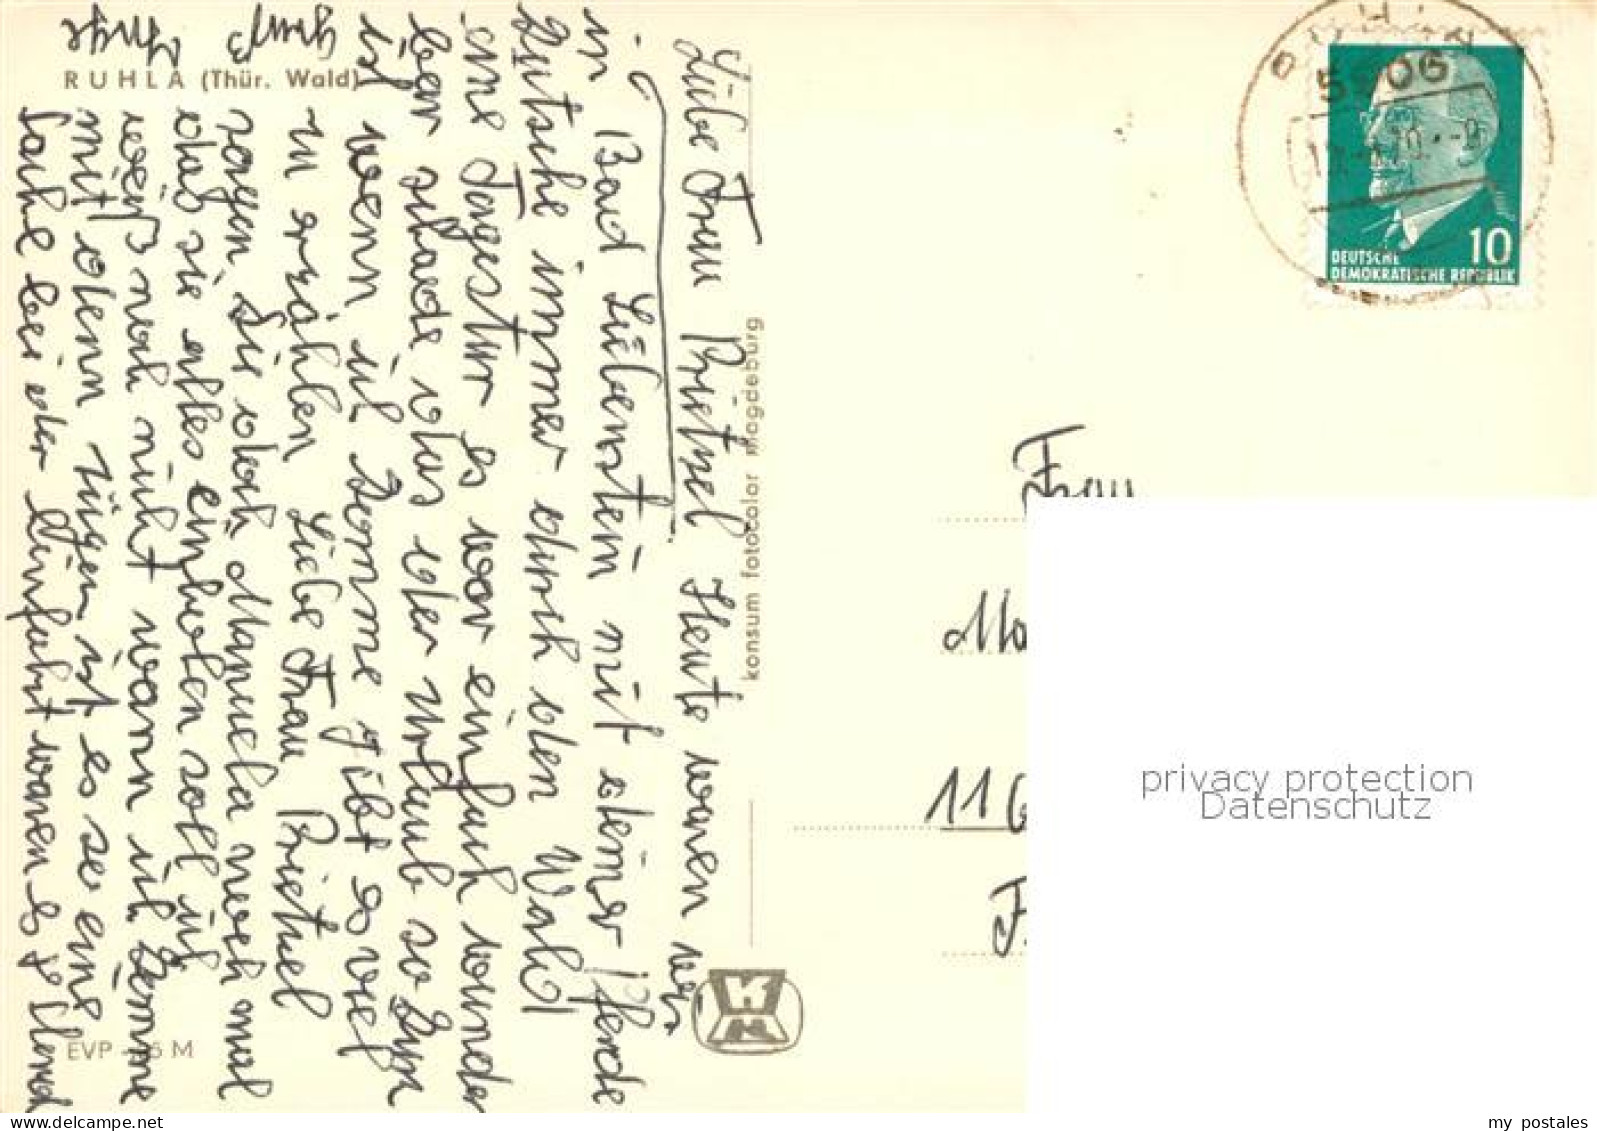 RUHLA (Thür. Wald)
Liebe Frau Prietzel Heute waren wir
in Bad Liebenstein mit einer Pferde
Kutsche immer durch den Wald
eine Tagestur es war einfach wunder
bar schade das der Urlaub so
ist wenn ich komme gibt es viel
zu erzählen Liebe Frau Prietzel
sagen Sie doch Manuela noch mal
das sie alles einholen soll ich
weiß noch nicht wann ich komme
mit dem Zügen ist es so eine
Sache bei der Hinfahrt waren es
Gruß
Inge
EVP M
konsum fotocolor magdeburg
5906
DEUTSCHE
DEMOKRATISCHE REPUBLIK
10
Frau
116
F.
privacy protection
Datenschutz
my postales